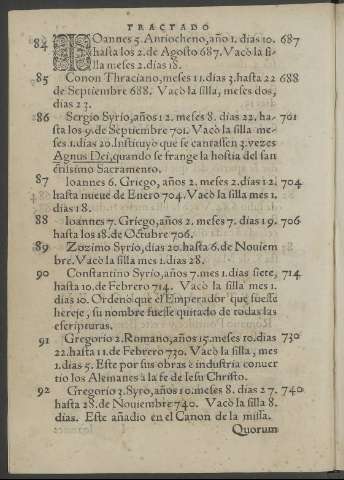 TRACTADO
84 IOannes 5. Antiocheno, año 1. dias 10. 687
hasta los 2. de Agosto 687. Vacò la si-
lla meses 2. dias 18.
85 Conon Thraciano, meses 11. dias 3. hasta 22 688
de Septiembre 688. Vacò la silla, meses dos,
dias 23.
86 Sergio Syrio, años 12. meses 8. dias 22. ha- 701
sta los 9. de Septiembre 701. Vacò la silla me-
ses 1. dias 20. Instituyò que se cantassen 3. vezes
Agnus Dei, quando se frange la hostia del san
ctissimo Sacramento.
87 Ioannes 6. Griego, años 2. meses 2. dias 12. 704
hasta nueue de Enero 704. Vacò la silla mes 1.
dias 18.
88 Ioannes 7. Griego, años 2. meses 7. dias 19. 706
hasta los 18. de Octubre 706.
89 Zozimo Syrio, dias 20. hasta 6. de Nouiem
bre. Vacò la silla mes 1. dias 28.
90 Constantino Syrio, años 7. mes 1. dias siete, 714
hasta 10. de Febrero 714. Vacò la silla mes 1.
dias 10. Ordenò que el Emperador que fuesse
hereje, su nombre fuesse quitado de todas las
escripturas.
91 Gregorio 2. Romano, años 15. meses 10. dias 730
22. hasta 11. de Febrero 730. Vacò la silla, mes
1. dias 5. Este por sus obras è industria conuer
tio los Alemanes à la fe de Iesu Christo.
92 Gregorio 3. Syro, años 10. meses 8. dias 27. 740
hasta 28. de Nouiembre 740. Vacò la silla 8.
dias. Este añadio en el Canon de la missa.
Quorum